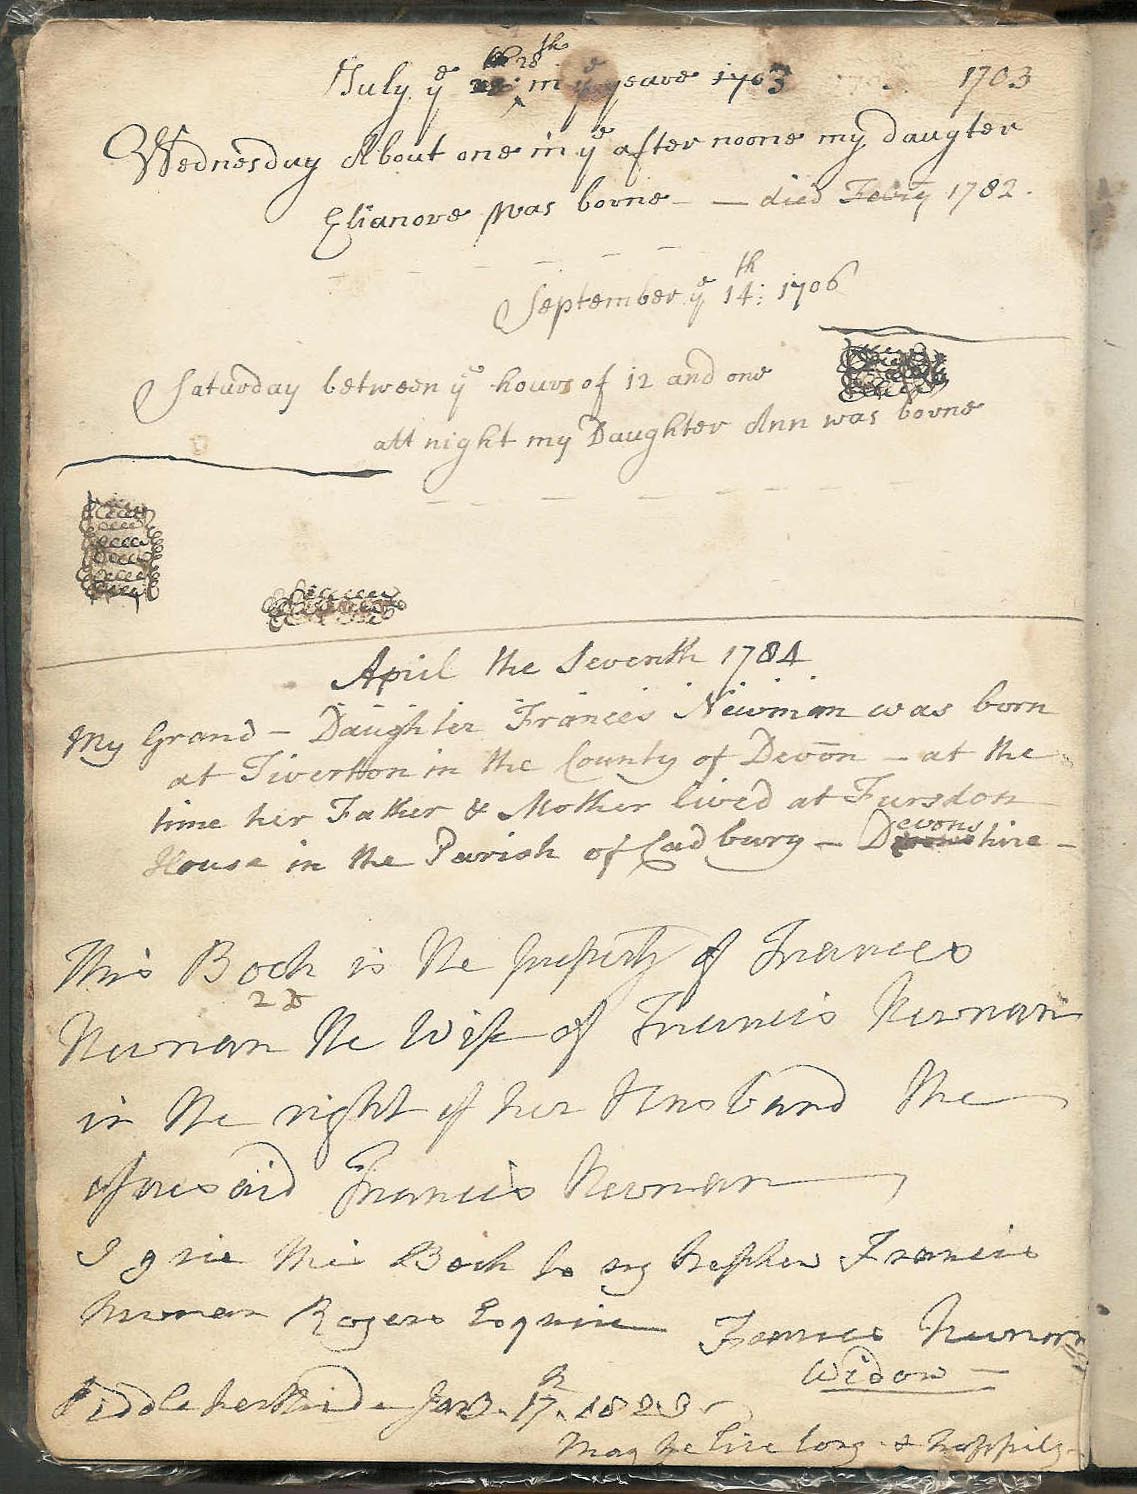 July ye 28th in ye yeare 1703 1703
Wednesday About one in ye after noone my daugter
Elianore was borne - - died Febry 1782.
September ye 14th: 1706
Saturday between ye hours of 12 and one
att night my Daughter Ann was borne
April the Seventh 1784
My Grand - Daughter Frances Newman was born
at Tiverton in the County of Devon - at the
time her Father & Mother lived at Fursdon
House in the Parish of Cadbury - Devonshire -
This Book is the property of Frances
Newman the Wife of Francis Newman
in the right of her Husband the
aforesaid Francis Newman
I give this Book to my Nephew Francis
Newman Rogers Esquire Frances Newman
Widow -
Jan. 17th. 1823
May he live long & happily